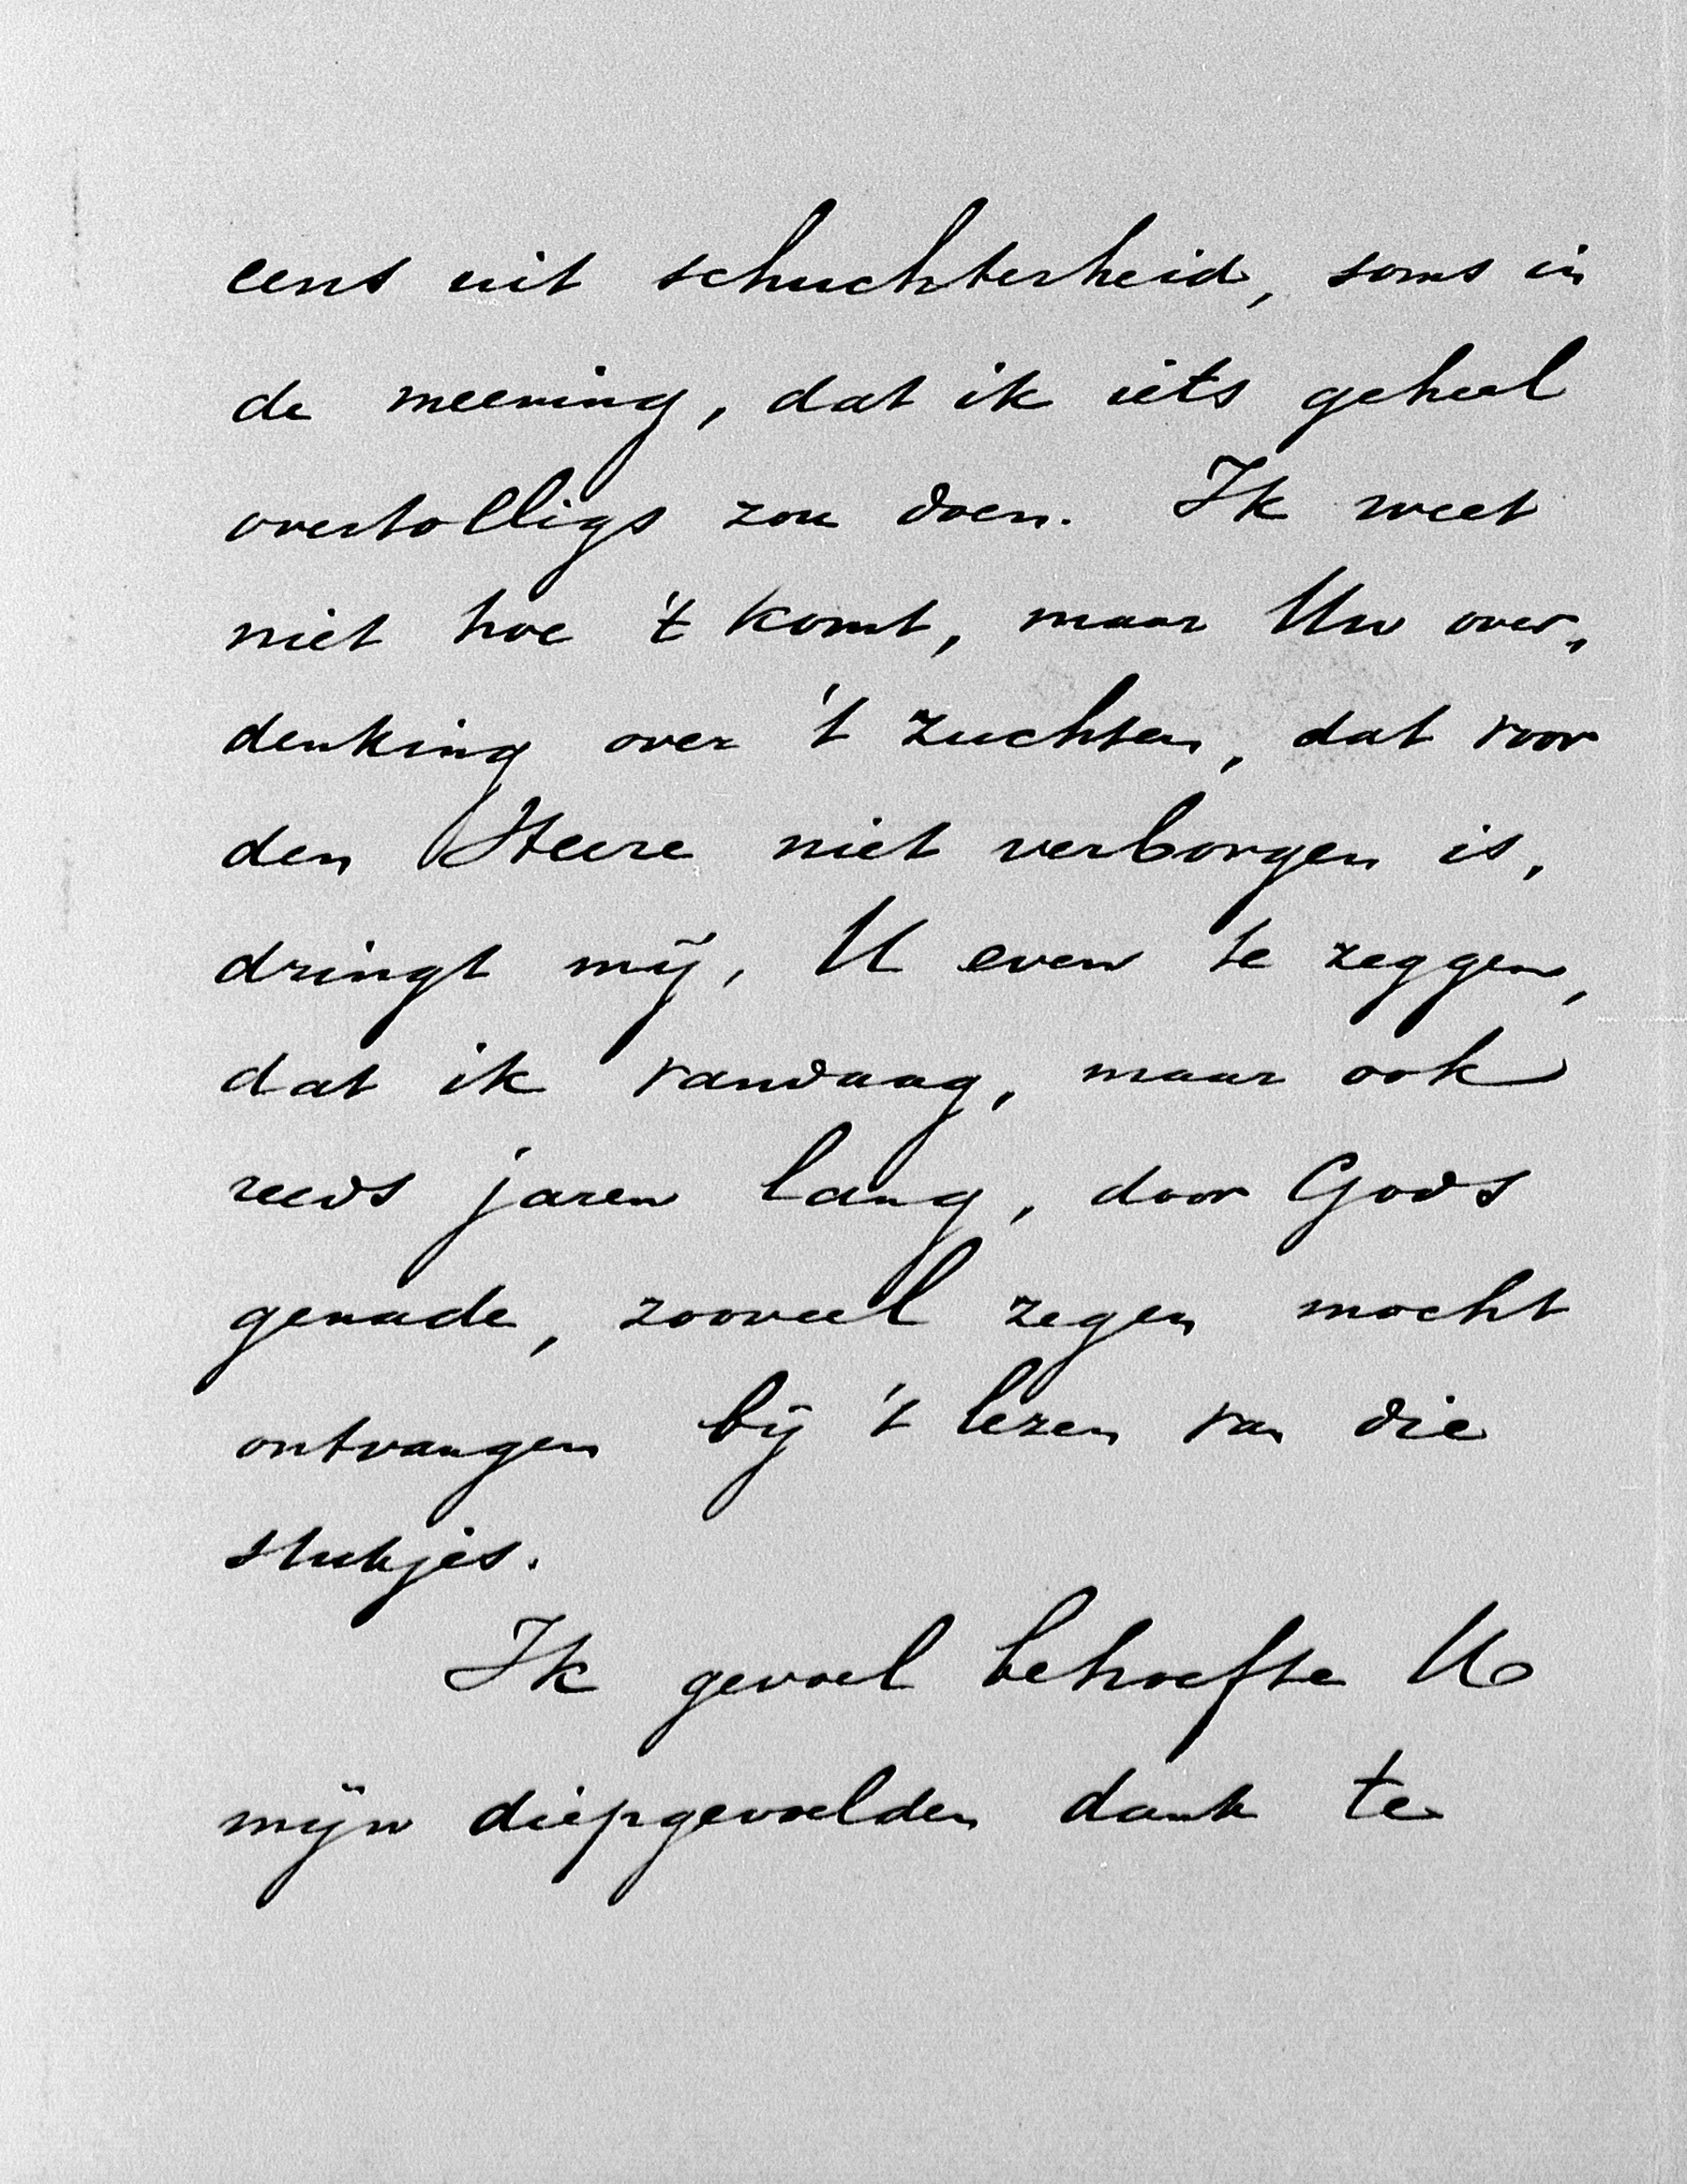 eens uit schuchterheid, soms in
de meening, dat ik iets geheel
overtolligs zou doen. Ik weet
niet hoe 't komt, maar Uw over,
denking over 't zuchten, dat voor
den Heere niet verborgen is,
dringt mij, U even te zeggen,
dat ik vandaag, maar ook
reeds jaren lang, door Gods
genade, zooveel zegen mocht
ontvangen bij 't lezen van die
stukjes.
Ik gevoel behoefte U
mijn diepgevoelden dank te